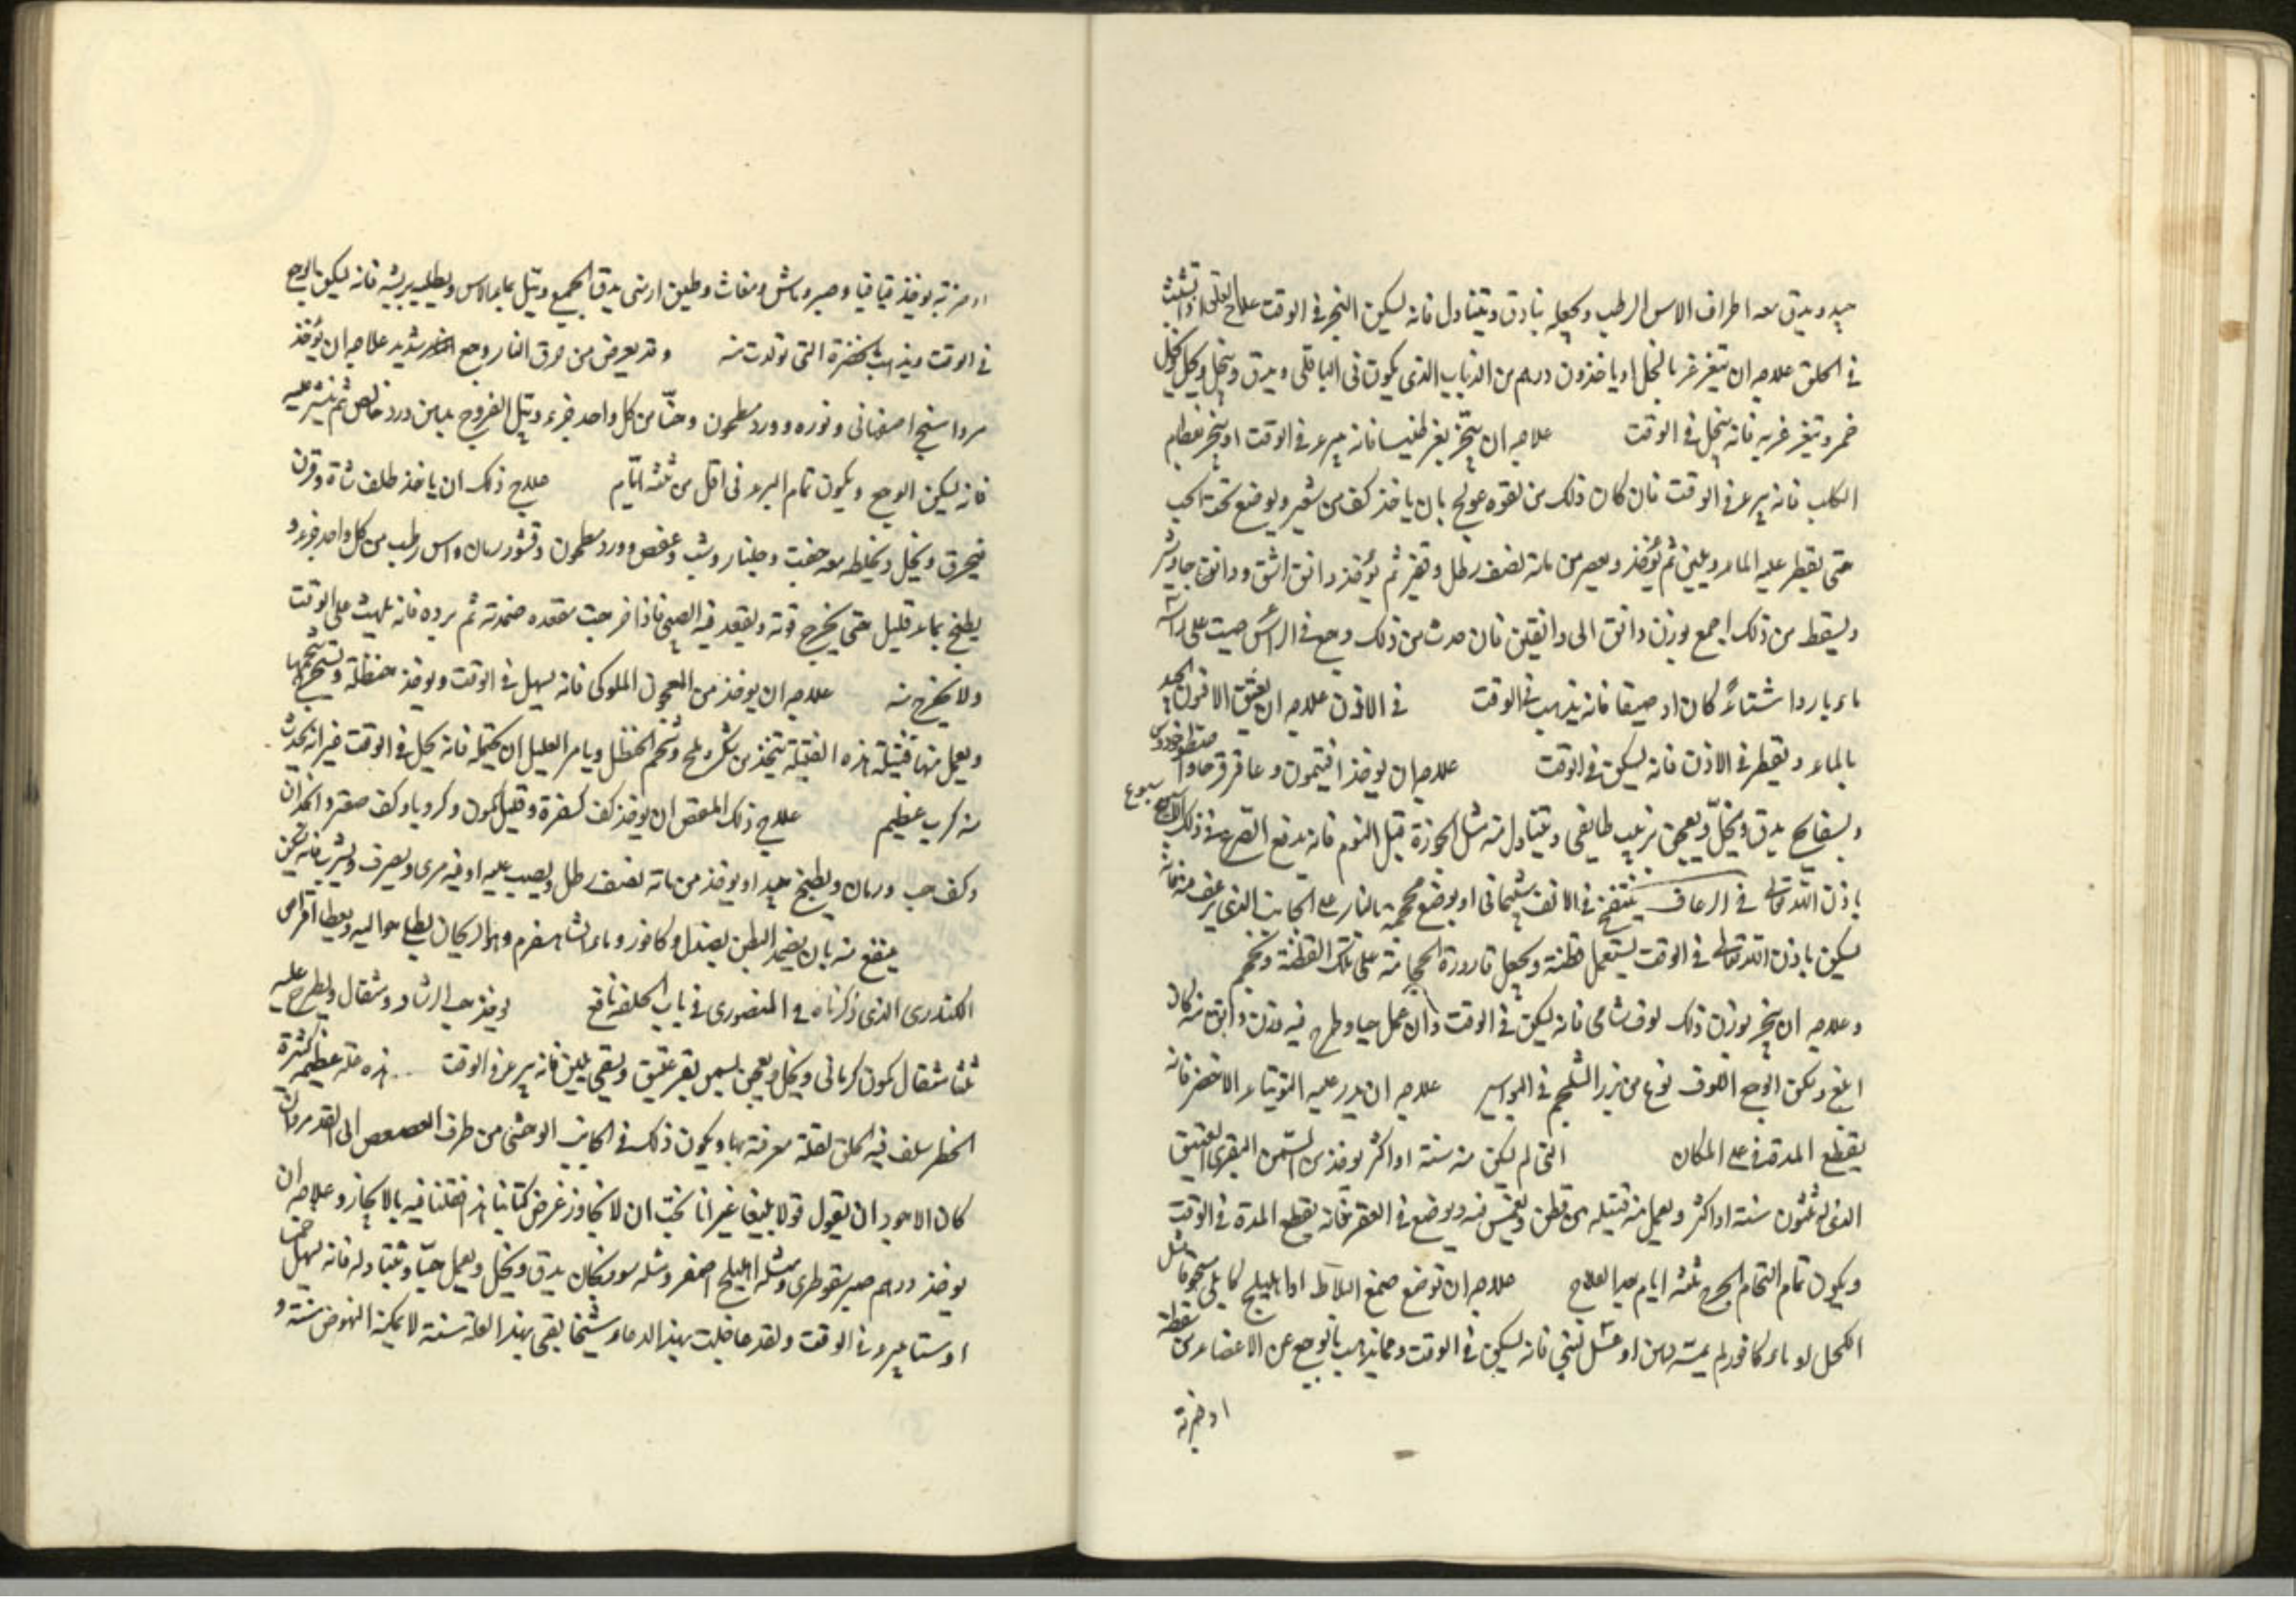 جيد ويدق معه اطراف الاس الرطب ويجعله بنادق ويتناول فانه يسكن البخر في الوقت علاج العلق اذا تشبث
في الحلق علاجه ان يتغرغر بالخل او ياخذ وزن درهم من الذباب الذي يكون في الباقلى ويدق وينخل ويحل بخل
خمر ويتغرغر به فانه ينحل في الوقت علاجه ان يبخر بغرطنيسا فانه يبرء في الوقت او يبخر بعظام
الكلب فانه يبرء في الوقت فان كان ذلك من لقوه عولج بان ياخذ كف من شعير ويوضع تحت الحب
حتى يقطر عليه الماء ويلين ثم يؤخذ ويعصر من مائه نصف رطل ثم يؤخذ دانق اشق ودانق جاوشير
ويسقط من ذلك اجمع بوزن دانق الى دانقين فان حدث من ذلك وجع في الراس صبت على راسه
ماء باردا شتاءً كان او صيفا فانه يذهب في الوقت في الاذن علاجه ان يعتق الافيون الجيد
بالماء ويقطر في الاذن فانه يسكن في الوقت علاجه ان يوخذ افتيمون وعاقرقرحا واسطوخودوس
وبسفايج يدق وينخل ويعجن بزبيب طايفي ويتناول منه مثل الجوزة قبل النوم فانه يدفع الصرع في ذلك الاسبوع
باذن الله تعالى في الرعاف ينفخ في الانف شب يماني او يوضع محجمة بالنار على الجانب الذي يرعف منه فانه
يسكن باذن الله تعالى في الوقت يستعمل قطنة ويجعل قارورة الحجامة على تلك القطنة ويحجم
وعلاجه ان يبخر بوزن ذلك لوف شامي فانه يسكن في الوقت وان عمل حبا وطرح فيه وزن دانق منه كان
ابلغ ويسكن الوجع اللوف نوع من بزر الشلجم في البواسير علاجه ان يدر عليه التوتياء الاخضر فانه
يقطع المدة في المكان التي لم يسكن منه سنة او اكثر يوخذ من السمن البقري العتيق
الذي له ثلثون سنة او اكثر ويعمل منه فتيله من قطن ويغمس فيه ويوضع في العقر فانه يقطع المدة في الوقت
ويكون تمام التحام الجرح ثلثة ايام بعد العلاج علاجه ان توضع صمغ البلاط او اهليلج كابلي مسحوقا مثل
الكحل او ماء كافور لم يمسه دهن او عسل نبتي فانه يسكن في الوقت ومما يذهب بالوجع عن الاعضاء من سقطة
او ضربة
او ضربة يوخذ قاقيا وصبر وماش ومغاث وطين ارمني يدق الجميع ويبل بماء الاس ويطليه بريشه فانه يسكن بالوجع
في الوقت ويذهب بالخضرة التي تولدت منه وقد يعرض من حرق النار وجع شديد علاجه ان يؤخذ
مرداسنج اصفهاني ونوره وورد مطحون وحنا من كل واحد جزء ويبل القروح بدهن ورد خالص ثم ينثر عليه
فانه يسكن الوجع ويكون تمام البرء في اقل من ثلثة ايام علاج ذلك ان ياخذ ظلف شاة وقرن
فيحرق وينخل ويخلط معه جفت وجلنار وشب وعفص وورد مطحون وقشور رمان واس رطب من كل واحد جزء و
يطبخ بماء قليل حتى يخرج قوته ويقعد فيه الصبي فاذا خرجت مقعده ضمدته ثم برده فانه يلبث على الوقت
ولا يخرج منه علاجه ان يوخذ من المعجون الملوكي فانه يسهل في الوقت ويوخذ حنظلة ويستخرج شحمها
ويعمل منها فتيلة هذه الفتيلة تتخذ من سكر وملح وشحم الحنظل ويامر العليل ان يحتمله فانه يحل في الوقت غير انه يحدث
منه كرب عظيم علاج ذلك المغص ان يوخذ كف كسفرة وقليل كمون وكرويا وكف صعتر وانجدان
وكف حب ورمان ويطبخ جيدا ويوخذ من مائه نصف رطل ويصب عليه اوقية مري ويصرف ويشرب فانه يسكن
ينفع منه بان يضمد البطن بصندل وكافور وماء الشاهسفرم وهو الريحان يطلي حواليه ويعطا اقراص
الكندري الذي ذكرناه في المنصوري في باب الخلفة نافع يوخذ حب الرشاد ومثقال ويطرح عليه
ثلثا مثقال كمون كرماني وينخل ويعجن بسمن بقر عتيق ويسقى بلبن فانه يبرء في الوقت هذه علة عظيمة كثيرة
الخطر سلف فيه الخلق لقلة معرفته بها ويكون ذلك في الجانب الوحشي من طرف العصعص الى القدم وان
كان الاجود ان يقول قولا بليغا غير انا نحب ان لا نجاوز غرض كتابنا هذا فقلنا فيه بالايجاز وعلاجه ان
يوخذ درهم صبر سقوطري ومثله اهليلج اصفر ومثله سورنجان يدق وينخل ويعمل حبا ويتناوله فانه يسهل خمسا
او ستا يبرء في الوقت ولقد عالجت بهذا الدواء شيخا بقي بهذا العلة سنة لا يمكنه النهوض سنة و